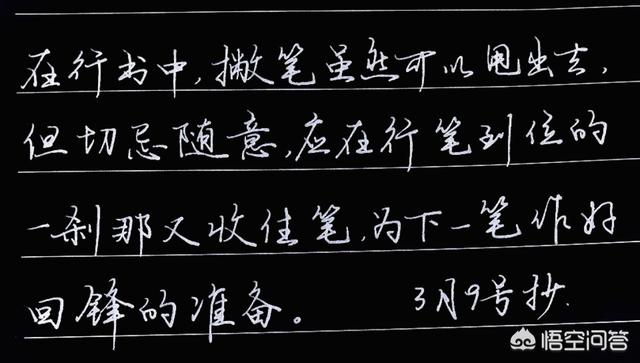 在行书中,撇笔虽然可以甩出去,
但切忌随意,应在行笔到位的
一刹那又收住笔,为下一笔作好
回锋的准备。 3月9号抄.
悟空问答